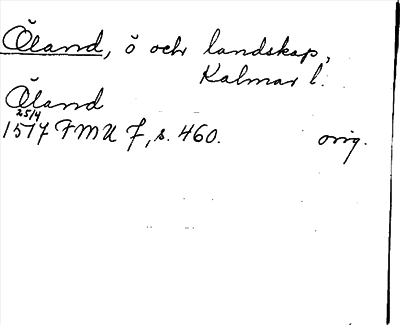 Öland, ö och landskap,
Kalmar l.
Öland
25/4
1517 FMU 7, s. 460. orig.